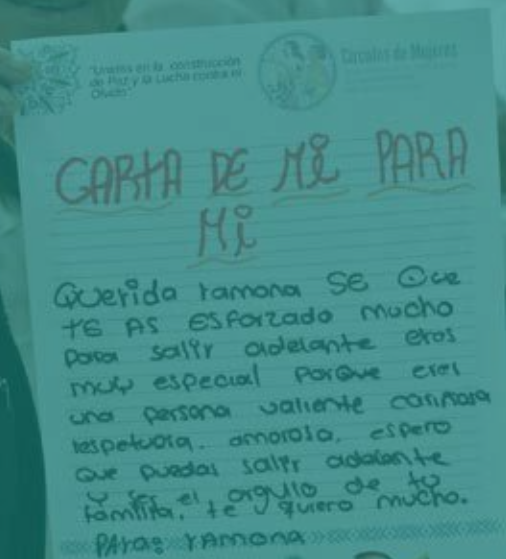 "Unidas en la construcción
de Paz y la Lucha contra el
Olvido"
Círculos de Mujeres
CARTA DE Mi PARA
Mi
Querida ramona SE Que
tE AS ESForzado mucho
para salir adelante eres
muy especial PorQue eres
una persona valiente cariñosa
respetuosa. amorosa. espero
Que puedas salir adelante
y ser el orgullo de tu
familia. te quiero mucho.
PARA: RAMONA